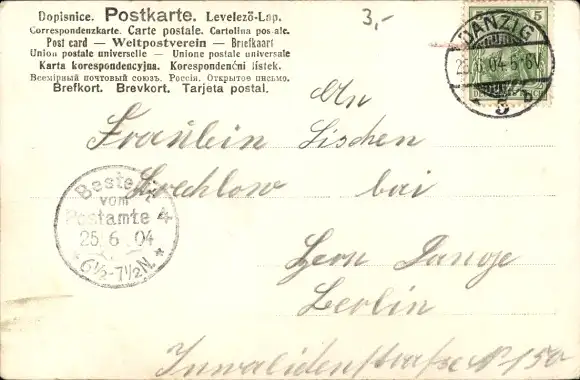 Dopisnice. Postkarte. Levelező-Lap.
Correspondenzkarte. Carte postale. Cartolina postale.
Post card — Weltpostverein — Briefkaart
Union postale universelle — Unione postale universale
Karta korespondencyjna. Korespondenční listek.
Всемірный почтовый союзъ. Россія. Открытое письмо.
Brefkort. Brevkort. Tarjeta postal.
3,-
DANZIG
25.6.04.5-6N.
5
An
Fräulein Lischen
bei
Bestellt
vom
Postamte 4
25.6.04
6½-7½N.
Herrn Lange
Berlin
Invalidenstraße No 150